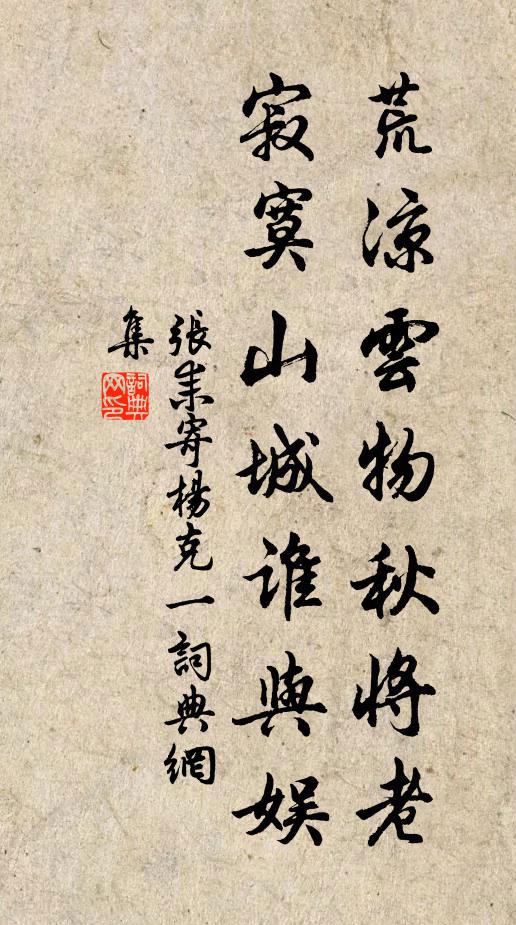 荒涼雲物秋將老
寂寞山城誰與娱
張耒寄楊克一詞典網
集
詞典
网印